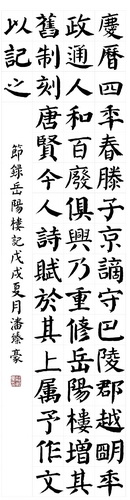 慶曆四年春滕子京謫守巴陵郡越朙年
政通人和百廢俱興乃重修岳陽樓增其
舊制刻唐賢今人詩賦於其上屬予作文
以記之
節錄岳陽樓記戊戌夏月潘臻豪